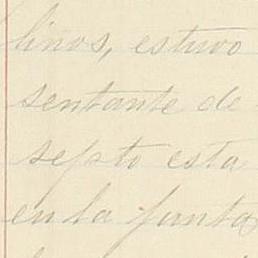 linos, estuvo
sentante de
septo esta
en la junta